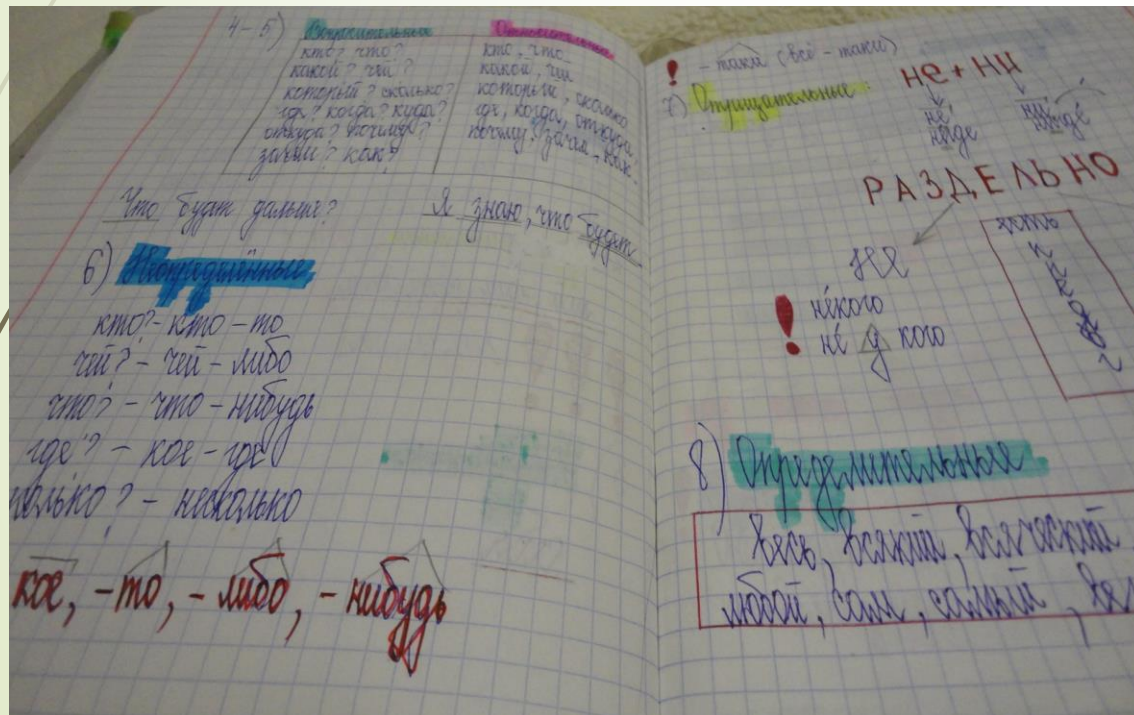 4-5) Вопросительные
кто? что?
какой? чей?
который? сколько?
где? когда? куда?
откуда? почему?
зачем? как?
Относительные
кто, что
какой, чей
который, сколько
где, когда, откуда
почему, зачем, как.
Что будет дальше?
Я знаю, что будет
6) Неопределённые
кто? - кто - то
чей? - чей - либо
что? - что - нибудь
где? - кое - где
сколько? - несколько
кое, -то, - либо, - нибудь
! - таки (всё - таки)
7) Отрицательные
не + ни
не́ ни
не́где нигде́
РАЗДЕЛЬНО
есть
предлог
не
! не́кого
не́ у кого
8) Определительные
весь, всякий, всяческий
любой, сам, самый,